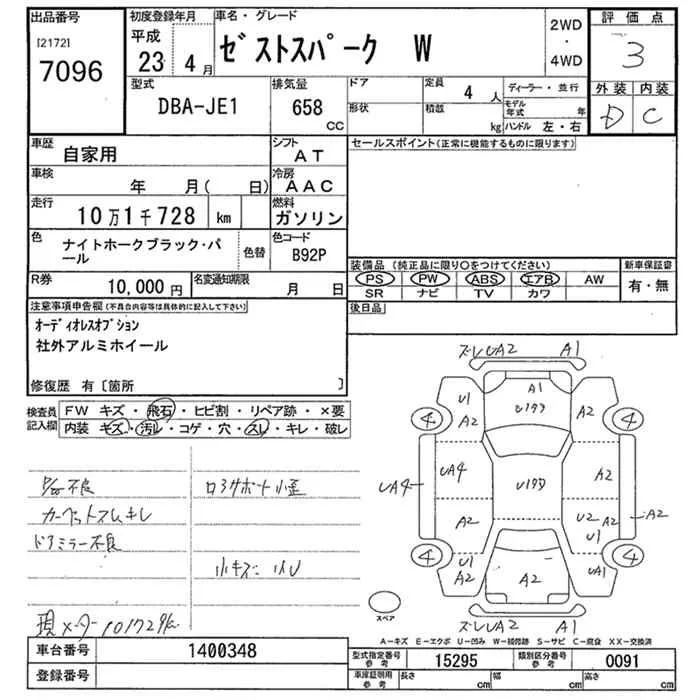 出品番号
[2172]
7096
初度登録年月
平成
23 4月
車名・グレード
ｾﾞｽﾄｽﾊﾟｰｸ W
2WD
・
4WD
評価点
3
外装 内装
D C
型式
DBA-JE1
排気量
658
CC
ドア
形状
定員
4 人
積載
kg
ディーラー・並行
モデル年式 年
ハンドル 左・右
車歴
自家用
シフト
AT
車検
年 月( 日)
冷房
AAC
走行
10万1千728 km
燃料
ガソリン
色
ナイトホークブラック・パール
色替
色コード
B92P
R券
10,000円
名変通知期限
月 日
セールスポイント(正常に機能するものに限ります)
装備品 (純正品に限り○をつけてください)
PS PW ABS エアB AW
SR ナビ TV カワ
新車保証書
有・無
後日品
注意事項申告欄(不具合内容等は具体的に記入して下さい)
ｵｰﾃﾞｨｵﾚｽｵﾌﾟｼｮﾝ
社外アルミホイール
修復歴 有〔箇所 〕
検査員記入欄
FW キズ・飛石・ヒビ割・リペア跡・×要
内装 キズ・汚レ・コゲ・穴・スレ・キレ・破レ
カーペットスレ、キレ
ドアミラー不良
小キズ、凹U
現メーター101729㎞
ズレUA2 A1
A1
U1 A2
U1
A2
4 4
UA4
UA4
U1
A2
A2
A2
U2 A2 U1
A2
4 4
U1 A2
A2
UA1
ズレUA2 A2
スペア
A－キズ E－エクボ U－凹み W－補修跡 S－サビ C－腐食 XX－交換済
車台番号
1400348
登録番号
型式指定番号
参考
15295
類別区分番号
参考
0091
車庫証明用
参考
長さ cm
幅 cm
高さ cm